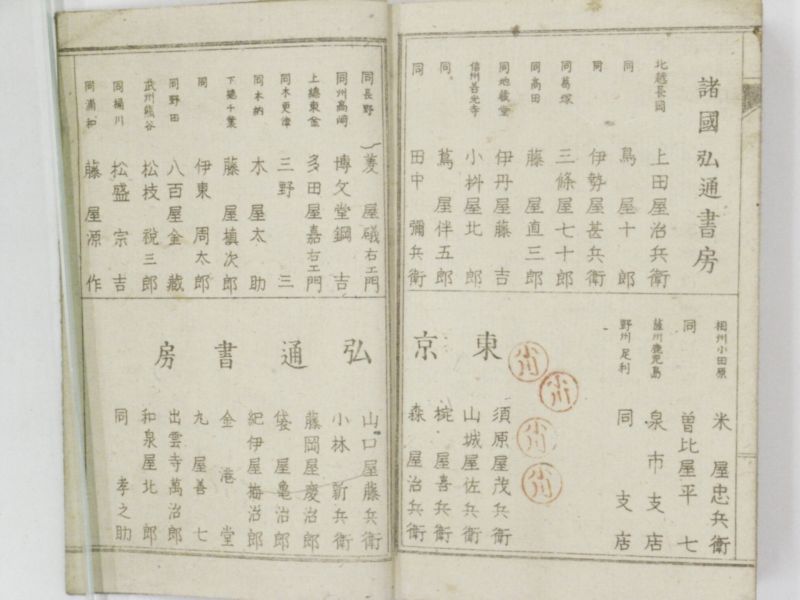 諸國弘通書房
北越長岡 上田屋治兵衛
同 鳥屋十郎
同 伊勢屋甚兵衛
同葛塚 三條屋七十郎
同高田 藤屋直三郎
同地蔵堂 伊丹屋藤吉
信州善光寺 小桝屋北郎
同 蔦屋伴五郎
同 田中彌兵衛
同長野 菱屋礒右エ門
同州高崎 博文堂鋼吉
上總東金 多田屋嘉右エ門
同木更津 三野三
同本納 木屋太助
下總千葉 藤屋槙次郎
同 伊東周太郎
同野田 八百屋金蔵
武州熊谷 松枝税三郎
同桶川 松盛宗吉
同浦和 藤屋源作
相州小田原 米屋忠兵衛
同 曽比屋平七
薩州鹿児島 泉市支店
野州足利 同支店
東京弘通書房
須原屋茂兵衛
山城屋佐兵衛
椀屋喜兵衛
森屋治兵衛
山口屋藤兵衛
小林新兵衛
藤岡屋慶治郎
袋屋亀治郎
紀伊屋梅治郎
金港堂
九屋善七
出雲寺萬治郎
和泉屋北郎
同孝之助